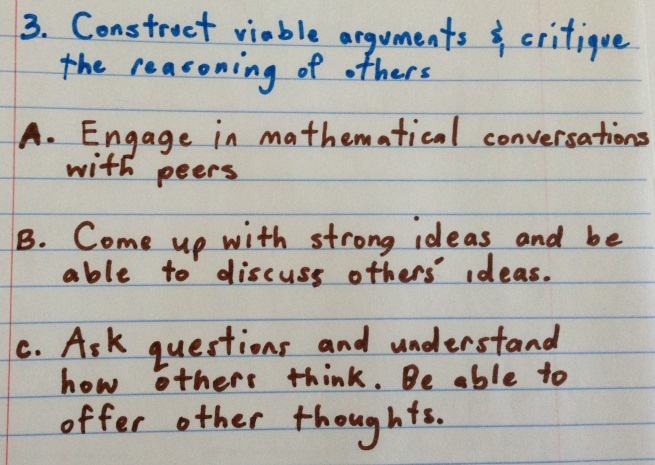 3. Construct viable arguments & critique
the reasoning of others
A. Engage in mathematical conversations
with peers
B. Come up with strong ideas and be
able to discuss others' ideas.
C. Ask questions and understand
how others think. Be able to
offer other thoughts.